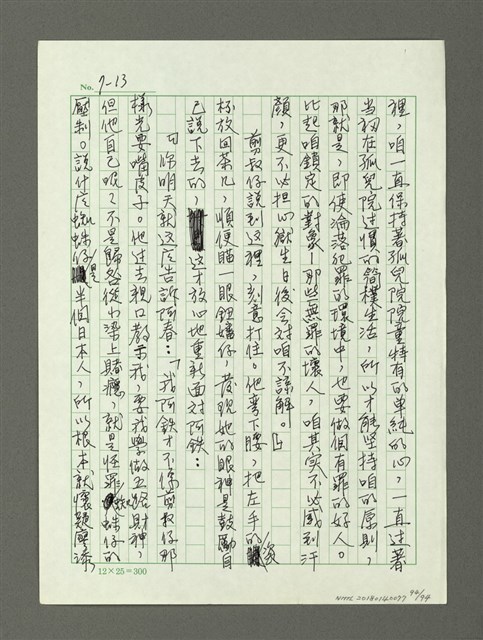 No. 7-13
裡，咱一直保持著孤兒院院童特有的單純的心，一直过著
当初在孤兒院过慣的簡樸生活，所以才能坚持咱的原則，
那就是，即使淪落犯罪的環境中，也要做個有罪的好人。
比起咱鎖定的對象—那些無罪的壞人，咱其实不必感到汗
顏，更不必担心獄生日後会对咱不諒解。」
剪叔仔說到这裡，刻意打住。他弯下腰，把左手的
杯放回茶几，順便瞄一眼鈕嬸仔，发现她的眼神是鼓勵自
己說下去的，这才放心地重新面对阿鉄：
「你明天就这庅告訴阿春…「我阿鉄才不像剪叔仔那
樣光耍嘴皮子。他过去親口教示我，要我學做五路財神，
但他自己呢？不是歸咎從小染上賭癮，就是怪罪蜘蛛仔的
壓制。說什庅蜘蛛仔是半個日本人，所以根本就懷疑廖添
12×25=300
NMTL 20180140077 94/94